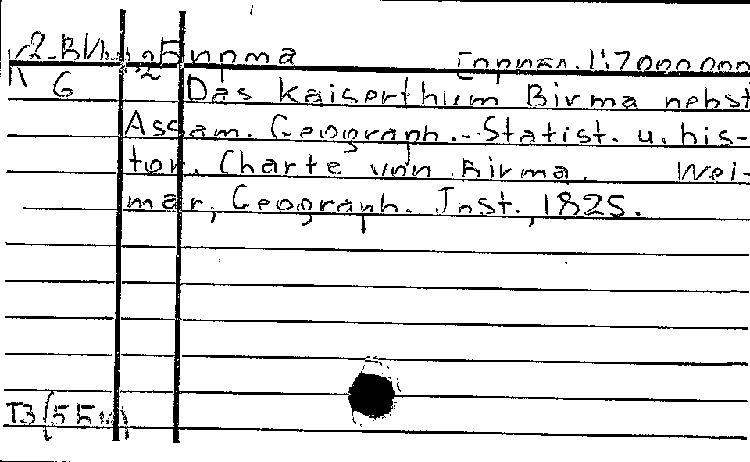 Бирма 1:7000.000
6 Das Kaiserthum Birma nebst
Assam. Geograph.-Statist. u. his-
tor. Charte von Birma. Wei-
mar, Geograph. Inst., 1825.